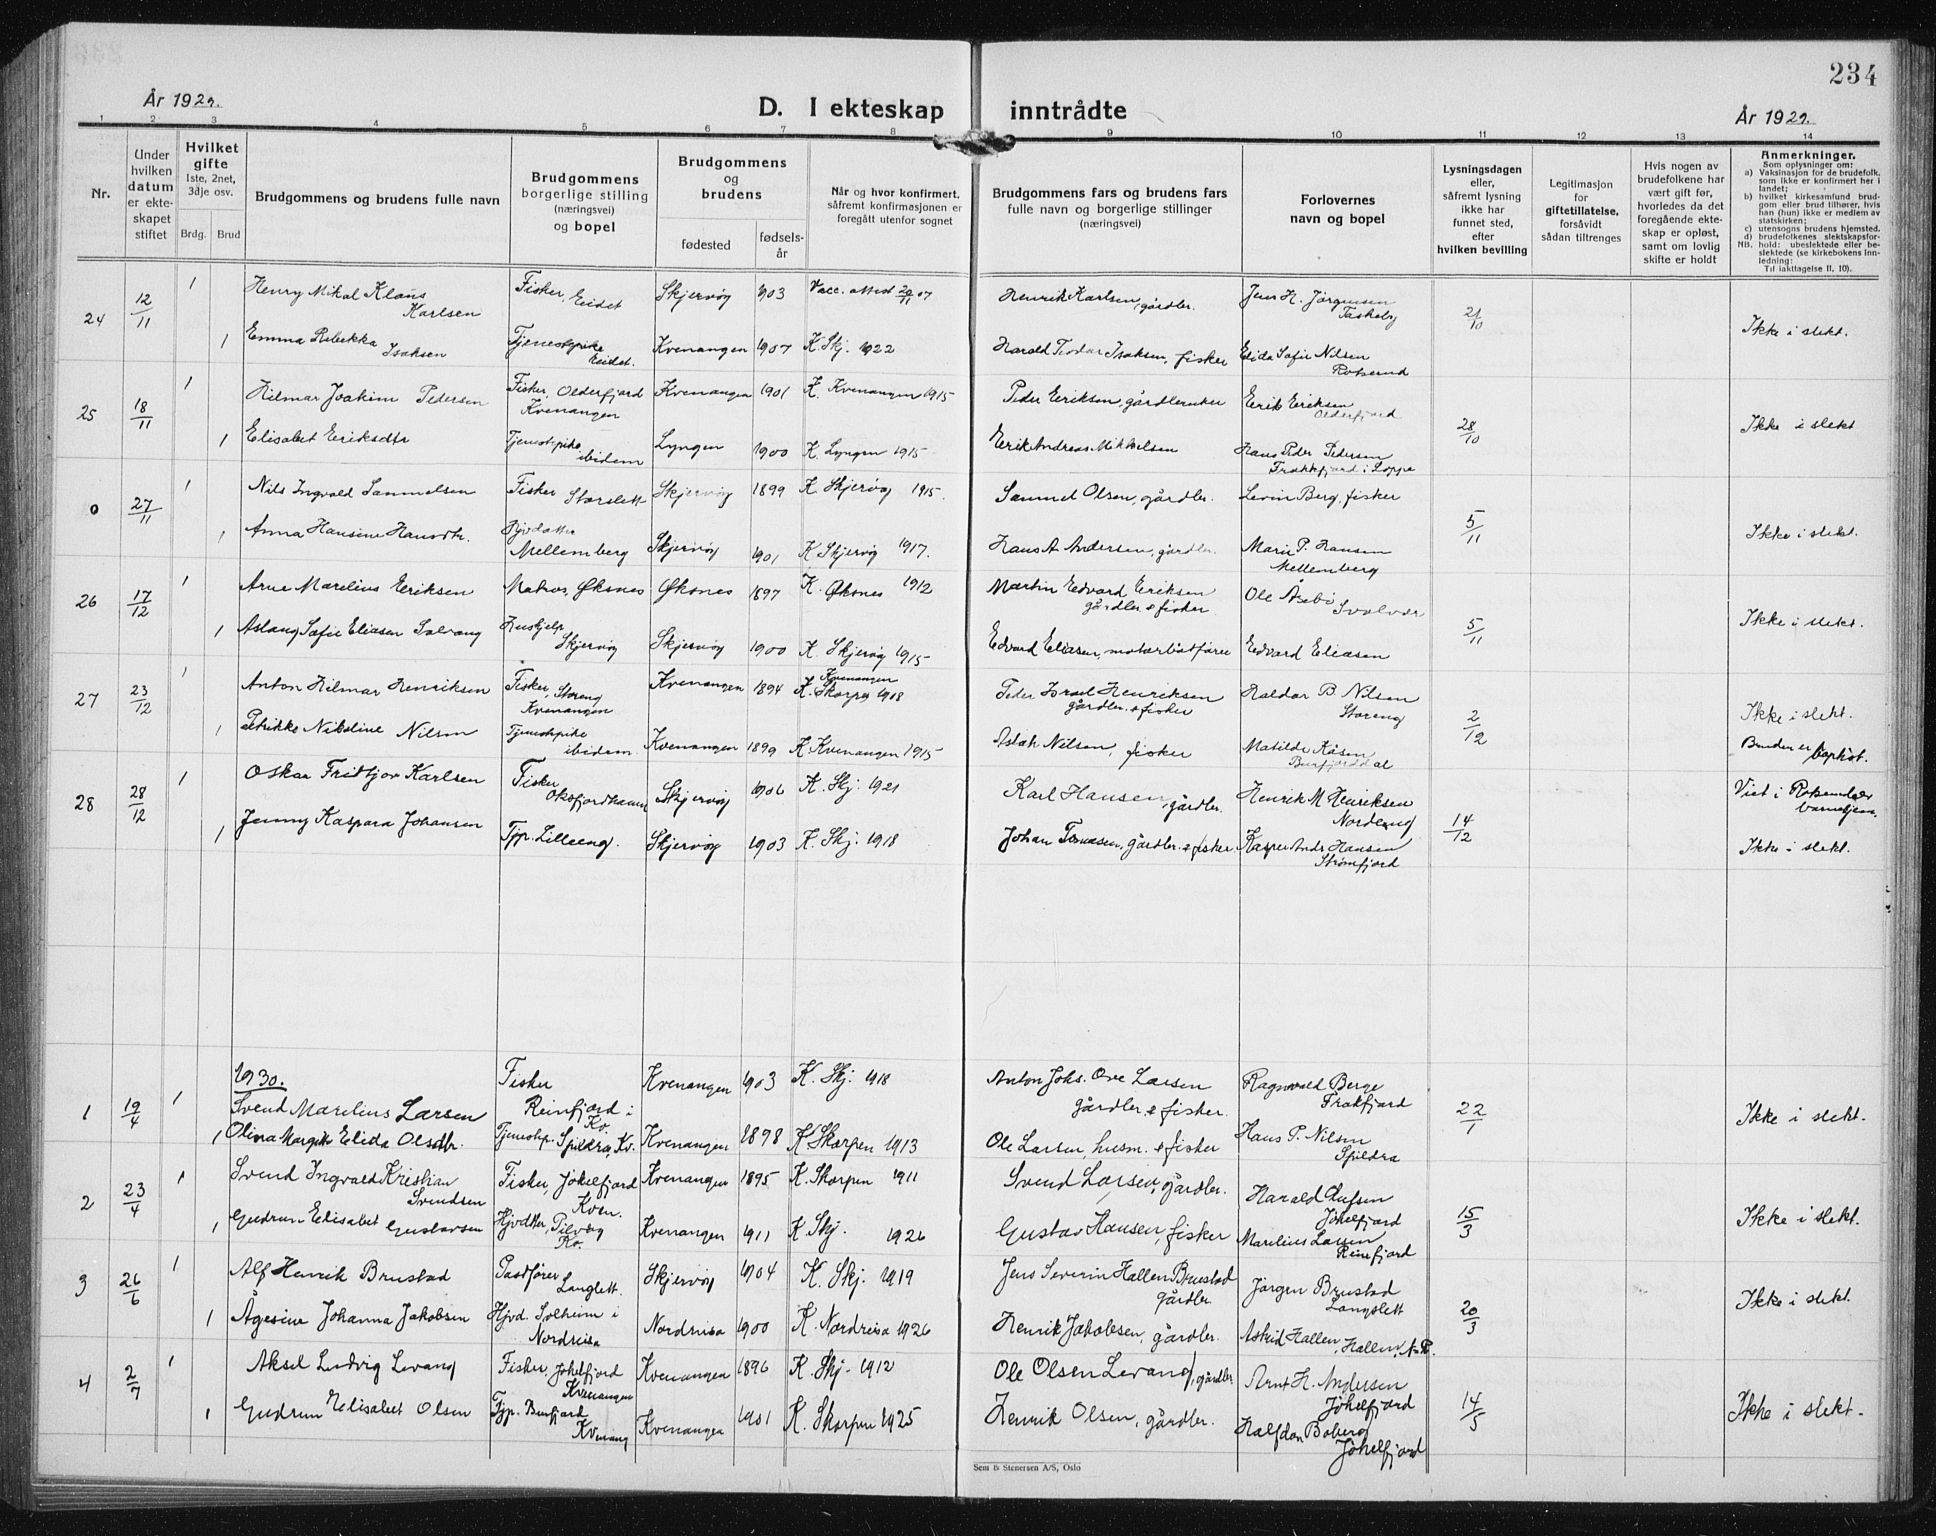 234
År 1929.
D. I ekteskap inntrådte
År 1929.
1 2 3 4 5 6 7 8 9 10 11 12 13 14
Nr.
Under
hvilken
datum
er ekte-
skapet
stiftet
Hvilket
gifte
1ste, 2net,
3dje osv.
Brdg. Brud
Brudgommens og brudens fulle navn
Brudgommens
borgerlige stilling
(næringsvei)
og bopel
Brudgommens
og
brudens
fødested
fødsels-
år
Når og hvor konfirmert,
såfremt konfirmasjonen er
foregått utenfor sognet
Brudgommens fars og brudens fars
fulle navn og borgerlige stillinger
(næringsvei)
Forlovernes
navn og bopel
Lysningsdagen
eller,
såfremt lysning
ikke har
funnet sted,
efter
hvilken bevilling
Legitimasjon
for
giftetillatelse,
forsåvidt
sådan tiltrenges
Hvis nogen av
brudefolkene har
vært gift før,
hvorledes da det
foregående ekte-
skap er opløst,
samt om lovlig
skifte er holdt
Anmerkninger.
Som oplysninger om:
a) Vaksinasjon for de brudefolk,
som ikke er konfirmert her i
landet;
b) hvilket kirkesamfund brud-
gom eller brud tilhører, hvis
han (hun) ikke er medlem av
statskirken;
c) utensogns brudens hjemsted.
d) brudefolkenes slektskapsfor-
NB. hold: ubeslektede eller be-
slektede (se kirkebokens inn-
ledning:
Til iakttagelse II, 10).
24 12/11 1 Henry Mikal Klaus Karlsen Fisker, Eidet Skjervøy 1903 Vacc. attest 20/11 07 Henrik Karlsen, gårdbr. Jens H. Jørgensen Taskeby 21/10
1 Emma Rebekka Isaksen Tjenestpike Eidet. Kvenangen 1907 K. Skj. 1922 Harald Teodor Isaksen, fisker Elida Sofie Nilsen Rotsund Ikke i slekt.
25 18/11 1 Hilmar Joakim Pedersen Fisker, Olderfjord Kvenangen Kvenangen 1901 K. Kvenangen 1915 Peder Eriksen, gårdbruker Erik Eriksen Olderfjord 28/10
1 Elisabet Eriksdtr Tjenestpike ibidem Lyngen 1900 K. Lyngen 1915 Erik Andreas Mikkelsen Hans Peder Pedersen Frakkfjord i Loppa Ikke i slekt
0 27/11 1 Nils Ingvald Sammelsen Fisker Storslett Skjervøy 1899 K. Skjervøy 1915. Sammel Olsen, gårdbr. Levin Berg, fisker 5/11
1 Anna Hansine Hansdtr. Hjvdatter Mellemberg Skjervøy 1901 K Skjervøy 1917. Hans A. Andersen, gårdbr. Marie P. Hansen Mellemberg Ikke i slekt.
26 17/12 1 Arne Marelius Eriksen Matros, Øksnes Øksnes 1897 K. Øksnes 1912 Martin Edvard Eriksen gårdbr. & fisker Ole Åsebø Svolvær 5/11
1 Aslaug Sofie Eliasen Solvang Hushjelp Skjervøy Skjervøy 1900 K. Skjervøy 1915 Edvard Eliasen, motorbåtfører Edvard Eliasen Ikke i slekt.
27 23/12 1 Anton Hilmar Henriksen Fisker, Storeng Kvenangen Kvenangen 1894 K. Skorpa Kvenangen 1908 Peder Israel Henriksen gårdbr. & fisker Haldor B. Nilsen Storeng 2/12 Ikke i slekt.
1 Petrikke Nikoline Nilsen Tjenestpike ibidem Kvenangen 1899 K. Kvenangen 1915 Aslak Nilsen, fisker Matilde Kåsen Burfjorddal Bruden er baptist.
28 28/12 1 Oskar Fridtjov Karlsen Fisker Oksfjordhamn Skjervøy 1906 K. Skj. 1921 Karl Hansen, gårdbr. Henrik M. Henriksen Nordeng 14/12 Viet i barnehjem.
1 Jenny Kaspara Johansen Tjp. Lilleeng. Skjervøy 1903 K. Skj. 1918 Johan Tomasen, gårdbr. & fisker Kasper Andr. Hansen Strømfjord Ikke i slekt.
1930.
1 19/4 1 Svend Marelius Larsen Fisker Reinfjord i Kv. Kvenangen 1903 K. Skj. 1918 Anton Johs. Ove Larsen gårdbr. & fisker. Ragnvald Berge Frakfjord 22/1
1 Olina Margit Elida Olsdtr. Tjenestp. Spildra, Kv. Kvenangen 1898 K Skorpen 1913 Ole Larsen, husm. & fisker Hans P. Nilsen Spildra Ikke i slekt.
2 23/4 1 Svend Ingvald Kristian Svendsen Fisker, Jøkelfjord Kven. Kvenangen 1895 K. Skorpen 1911 Svend Larsen, gårdbr. Harald Olufsen Jøkelfjord 15/3
1 Gudrun Elisabet Gustavsen Hjvdtter, Kv. Kvenangen 1911 K. Skj. 1926 Gustav Hansen, fisker Marelius Larsen Reinfjord Ikke i slekt.
3 26/6 1 Alf Henrik Brustad Postfører Langslett. Skjervøy 1904 K. Skj. 1919 Jens Severin Hallen Brustad gårdbr. Jørgen Brustad Langslett 20/3
1 Ågesine Johanna Jakobsen Hjvd. Solheim i Nordreisa Nordreisa 1900 K. Nordreisa 1926 Henrik Jakobsen, gårdbr. Astrid Hallen, Hallen, N.R. Ikke i slekt.
4 2/7 1 Aksel Ludvig Levang Fisker, Jøkelfjord Kvenangen Kvenangen 1896 K. Skj. 1912 Ole Olsen Levang, gårdbr Arnt H. Andersen Jøkelfjord 14/5
1 Gudrun Elisabet Olsen Tjp. Burfjord Kvenang Kvenangen 1901 K. Skorpen 1925 Henrik Olsen, gårdbr. Halfdan Boberg Jøkelfjord Ikke i slekt.
Sem & Stenersen A/S, Oslo